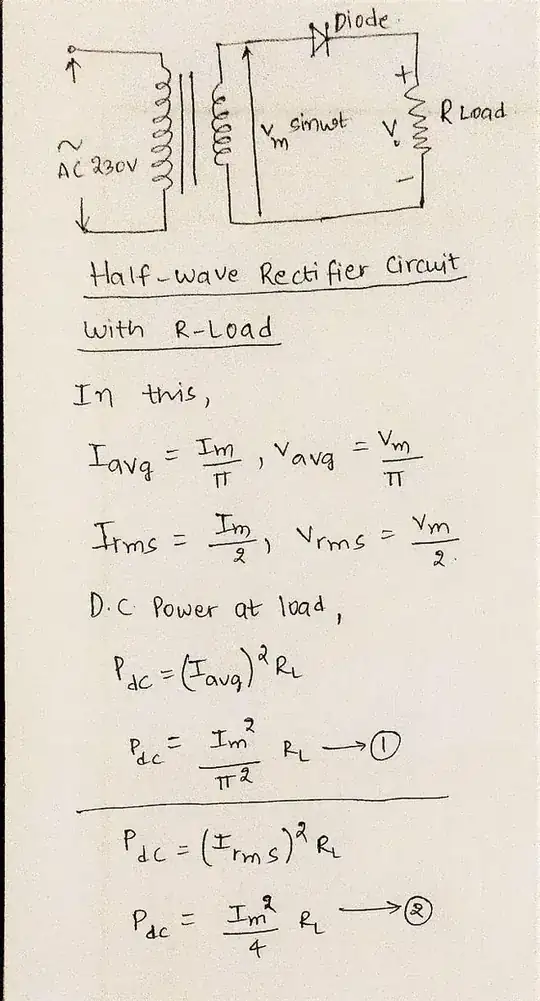 Diode
+
R Load
V_m sinωt
V_o
~
AC 230V
-
Half-wave Rectifier Circuit
with R-Load
In this,
I_avg = I_m/π , V_avg = V_m/π
I_rms = I_m/2 , V_rms = V_m/2.
D.C Power at load,
P_dc = (I_avg)² R_L
P_dc = I_m²/π² R_L → ①
P_dc = (I_rms)² R_L
P_dc = I_m²/4 R_L → ②